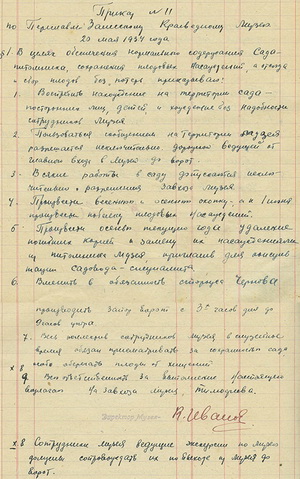 Приказ № 11
по Переславль Залесскому Краеведному Музею
23 мая 1937 года
§1. В целях обеспечения нормального содержания Сада-
питомника, сохранения плодовых насаждений, а прихода
и сбор плодов без потерь приказываю:
1. Воспретить нахождение на территории сада
посторонних лиц, детей, и хождения без надобности
сотрудников Музея
2. Пользоваться сообщением на территории музея
разрешается исключительно дорогой ведущей от
главного входа в музей до ворот.
3. Всякие работы в саду допускаются исклю-
чительно с разрешения Завед. музея.
4. Произвести весеннюю и осеннюю окопку, а к 1 июня
произвести побелку плодовых насаждений.
5. Произвести осенью текущего года удаление
погибших корней и замену их насаждениями
из питомника музея, пригласив для консуль-
тации садовода-специалиста
6. Вменить в обязанность сторожу Чернову
производить запор ворот с 3х часов дня до
9 часов утра.
7. Всё коллектив сотрудников музея в служебное
время обязан присматривать за сохранностью сада
оберегать плоды от хищений.
9. Ответственность за выполнение настоящего
возлагаю на завхоза музея, Тимофеева.
Директор Музея
К. Иванов
× 8 Сотрудники музея ведущие экскурсии по музею
должны сопровождать их по выходе из музея до
ворот.